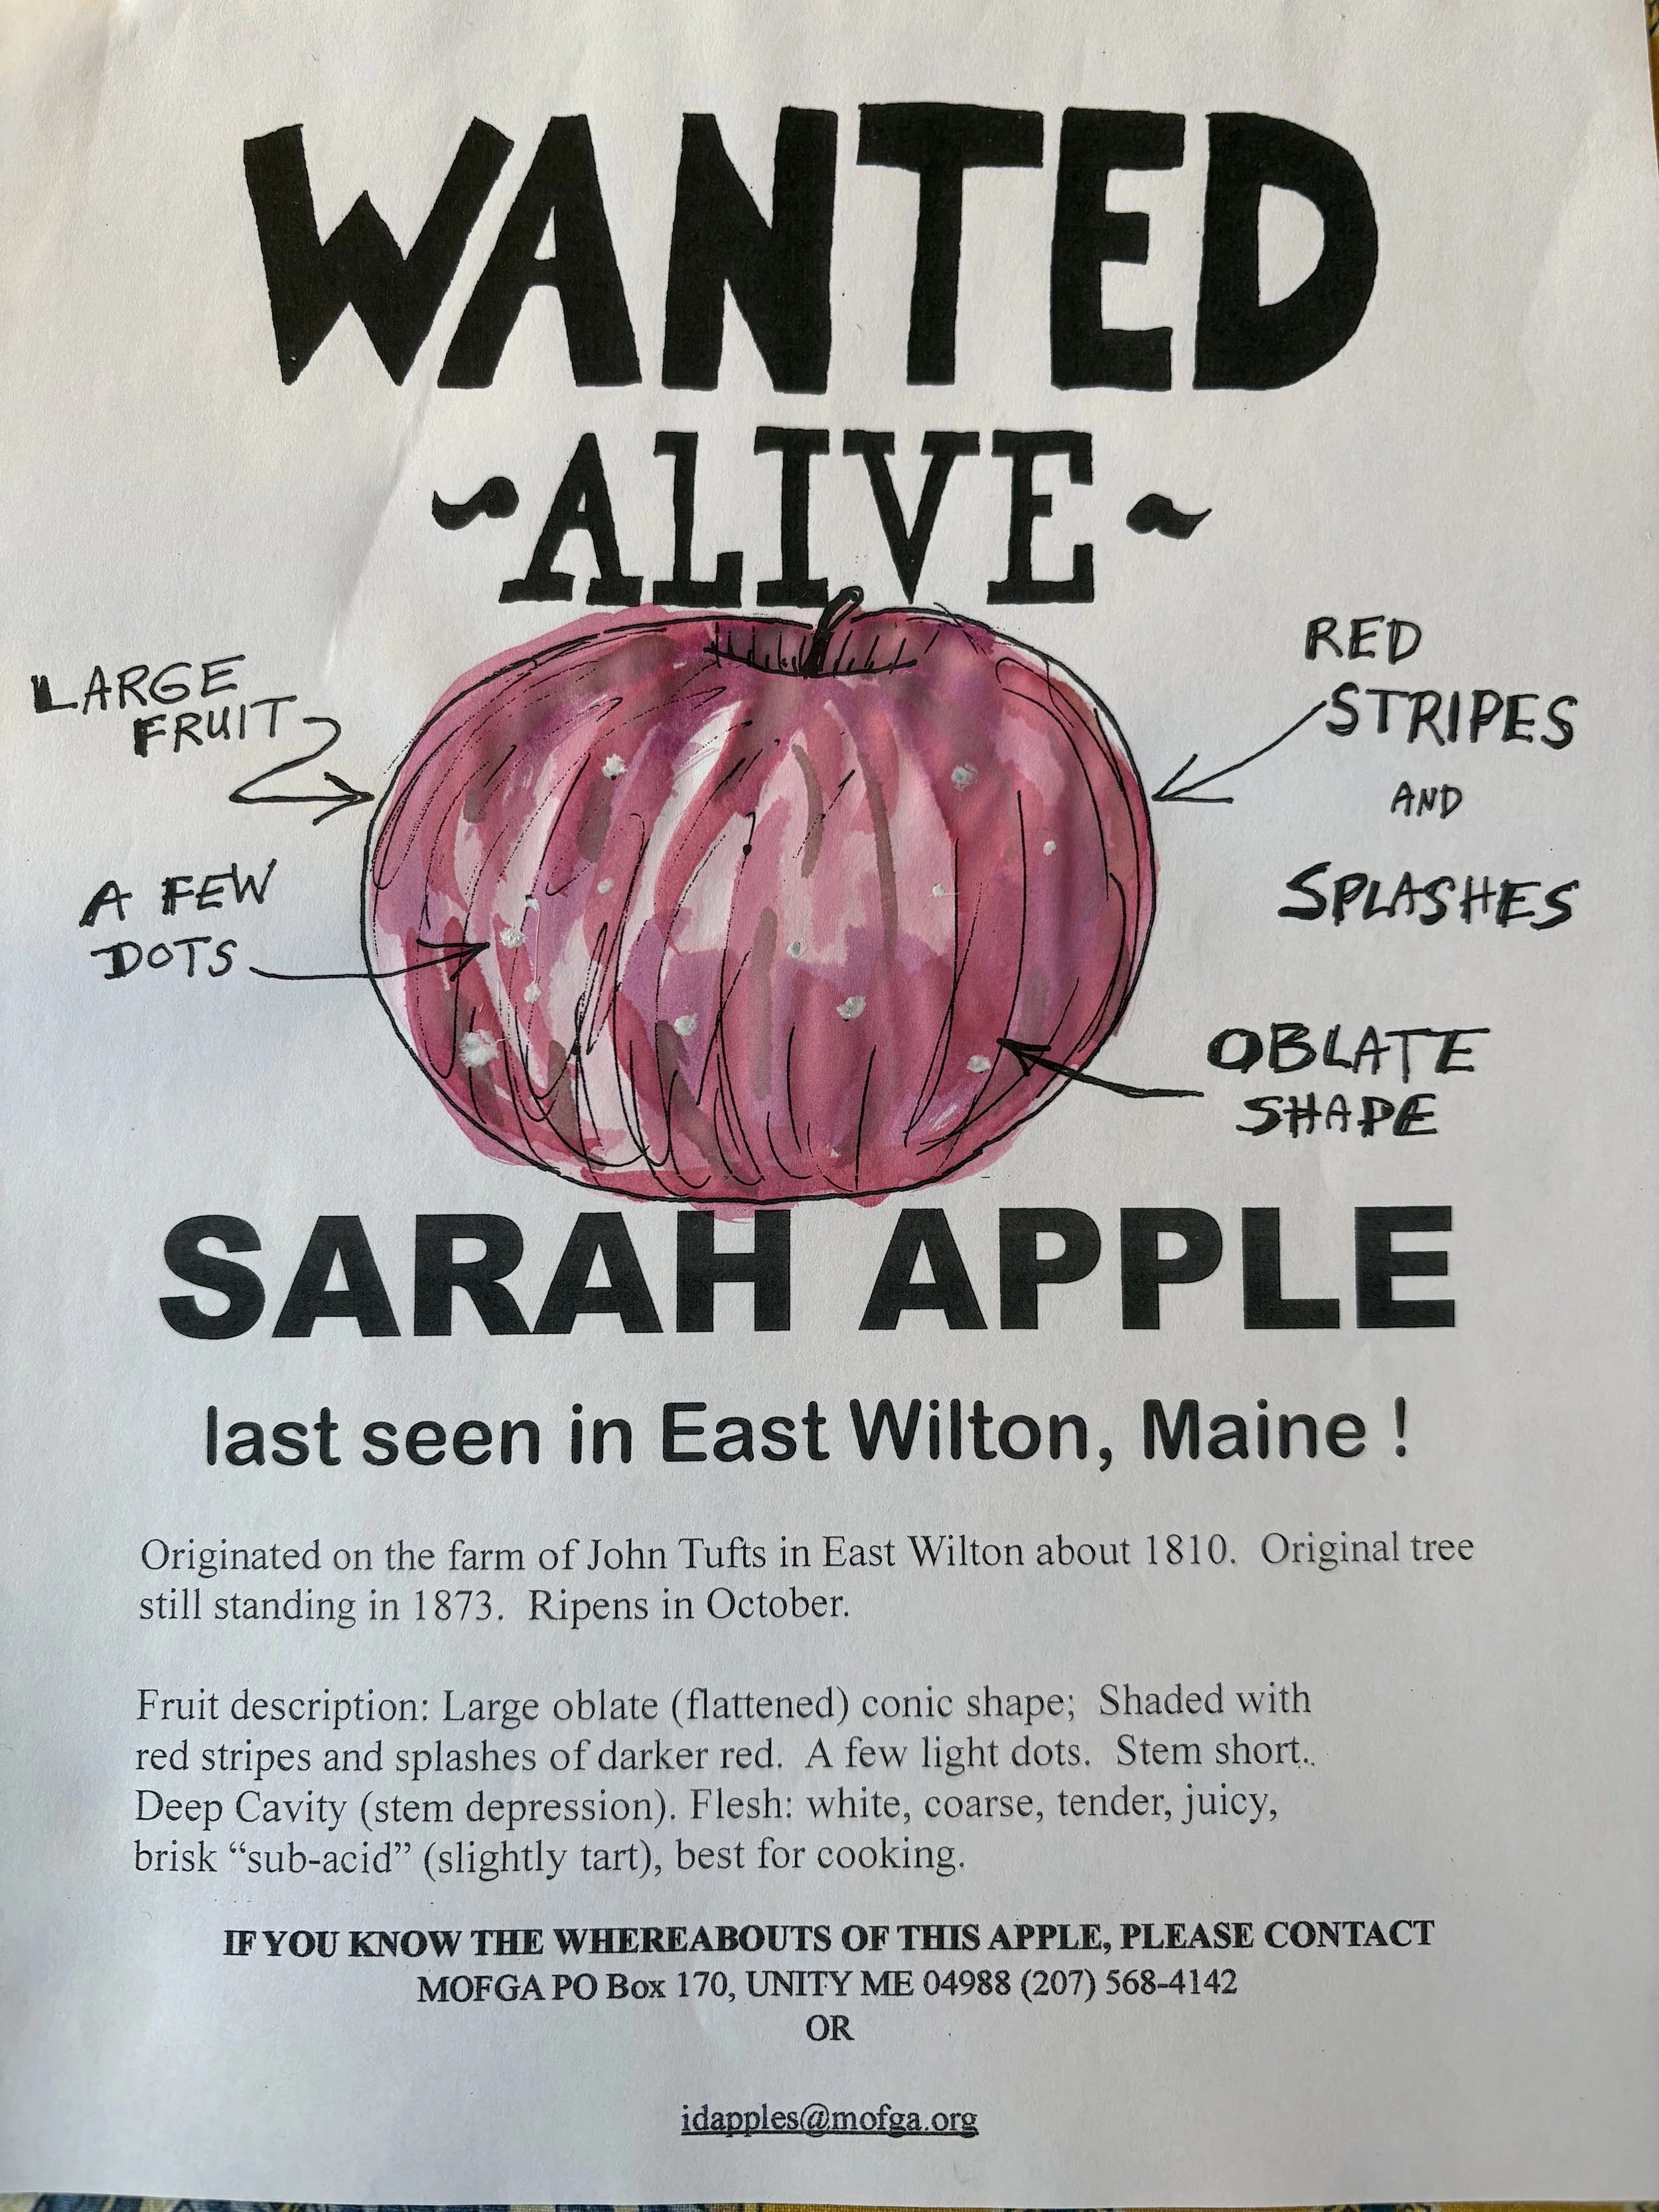 WANTED
~ALIVE~
LARGE
FRUIT
A FEW
DOTS
RED
STRIPES
AND
SPLASHES
OBLATE
SHAPE
SARAH APPLE
last seen in East Wilton, Maine !
Originated on the farm of John Tufts in East Wilton about 1810.  Original tree
still standing in 1873.  Ripens in October.
Fruit description: Large oblate (flattened) conic shape;  Shaded with
red stripes and splashes of darker red.  A few light dots.  Stem short..
Deep Cavity (stem depression). Flesh: white, coarse, tender, juicy,
brisk “sub-acid” (slightly tart), best for cooking.
IF YOU KNOW THE WHEREABOUTS OF THIS APPLE, PLEASE CONTACT
MOFGA PO Box 170, UNITY ME 04988 (207) 568-4142
OR
idapples@mofga.org